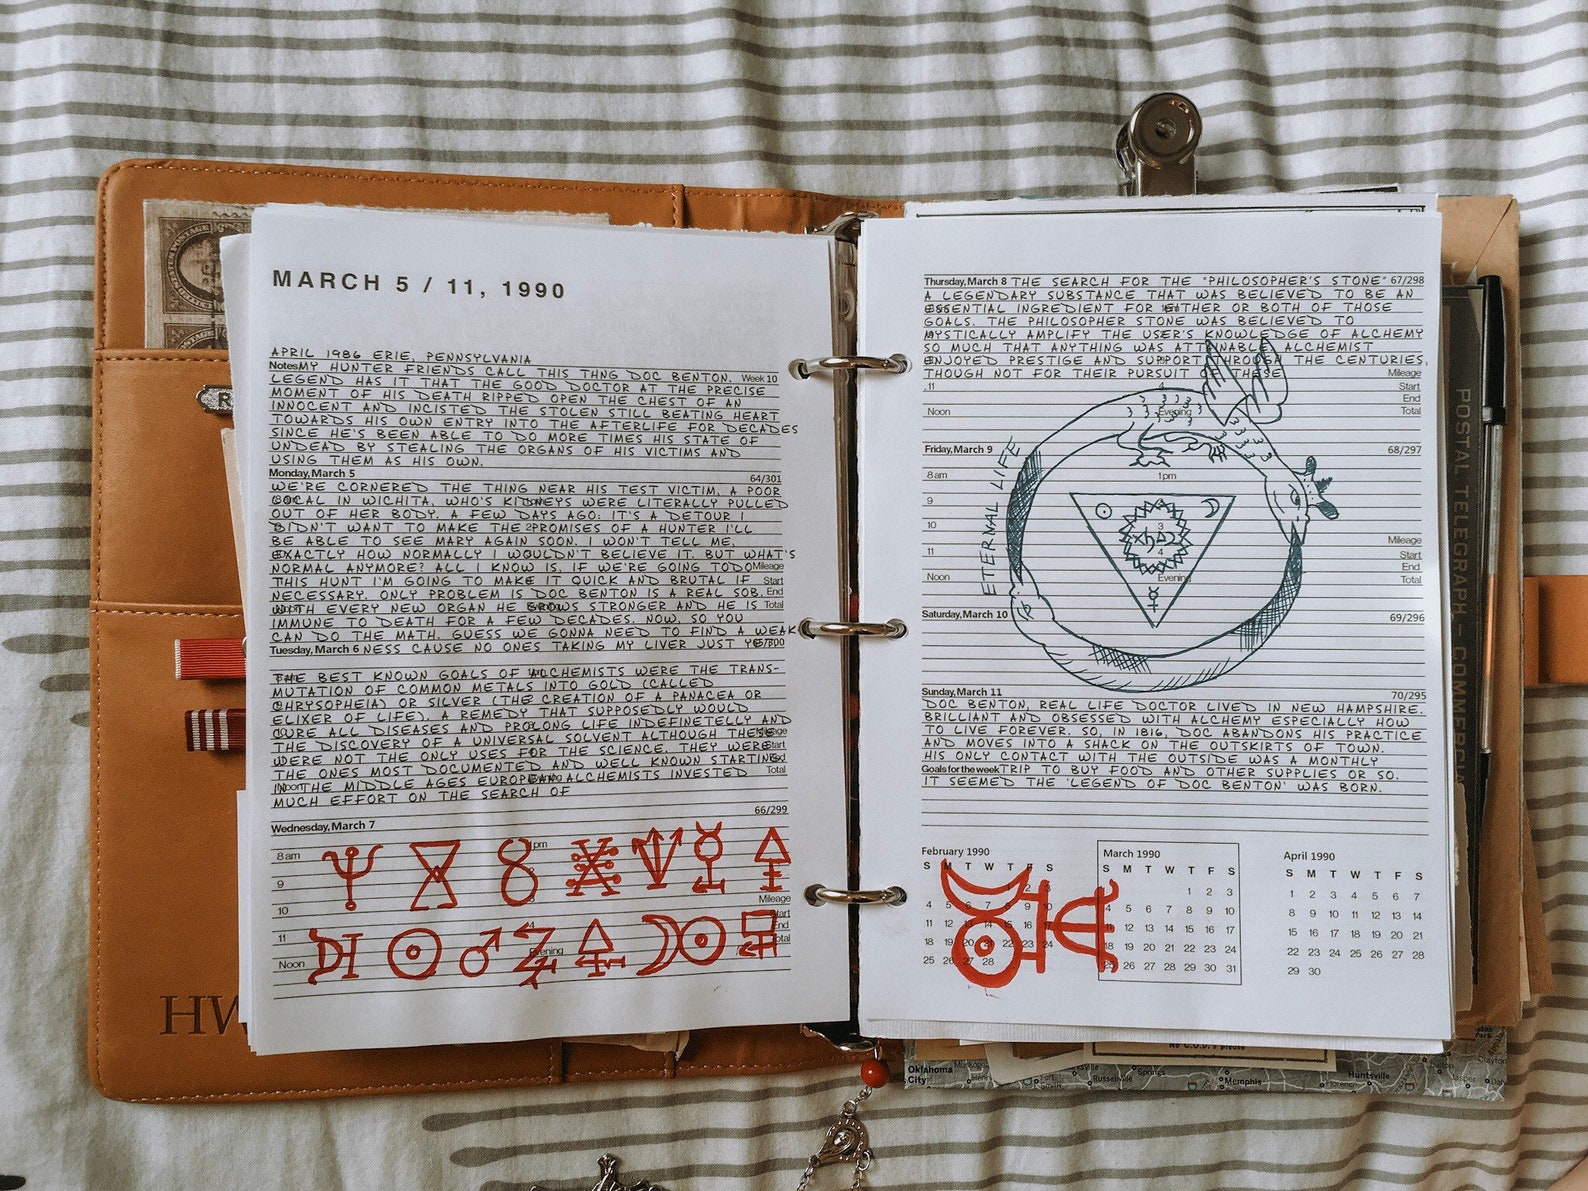 MARCH 5 / 11, 1990
APRIL 1986 ERIE, PENNSYLVANIA
Notes MY HUNTER FRIENDS CALL THIS THNG DOC BENTON. Week 10
LEGEND HAS IT THAT THE GOOD DOCTOR AT THE PRECISE
MOMENT OF HIS DEATH RIPPED OPEN THE CHEST OF AN
INNOCENT AND INCISTED THE STOLEN STILL BEATING HEART
TOWARDS HIS OWN ENTRY INTO THE AFTERLIFE FOR DECADES
SINCE HE'S BEEN ABLE TO DO MORE TIMES HIS STATE OF
UNDEAD BY STEALING THE ORGANS OF HIS VICTIMS AND
USING THEM AS HIS OWN.
Monday, March 5 64/301
WE'RE CORNERED THE THING NEAR HIS TEST VICTIM, A POOR
LOCAL IN WICHITA, WHO'S KIDNEYS WERE LITERALLY PULLED
OUT OF HER BODY. A FEW DAYS AGO. IT'S A DETOUR I
DIDN'T WANT TO MAKE THE PROMISES OF A HUNTER I'LL
BE ABLE TO SEE MARY AGAIN SOON. I WON'T TELL ME,
EXACTLY HOW NORMALLY I WOULDN'T BELIEVE IT. BUT WHAT'S
NORMAL ANYMORE? ALL I KNOW IS, IF WE'RE GOING TO DO Mileage
THIS HUNT I'M GOING TO MAKE IT QUICK AND BRUTAL IF Start
NECESSARY. ONLY PROBLEM IS DOC BENTON IS A REAL SOB. End
WITH EVERY NEW ORGAN HE GROWS STRONGER AND HE IS Total
IMMUNE TO DEATH FOR A FEW DECADES. NOW, SO YOU
CAN DO THE MATH. GUESS WE GONNA NEED TO FIND A WEAK
Tuesday, March 6 NESS CAUSE NO ONES TAKING MY LIVER JUST YET. 65/300
THE BEST KNOWN GOALS OF ALCHEMISTS WERE THE TRANS-
MUTATION OF COMMON METALS INTO GOLD (CALLED
CHRYSOPHEIA) OR SILVER (THE CREATION OF A PANACEA OR
ELIXER OF LIFE), A REMEDY THAT SUPPOSEDLY WOULD
CURE ALL DISEASES AND PROLONG LIFE INDEFINETELLY AND
THE DISCOVERY OF A UNIVERSAL SOLVENT ALTHOUGH THESE Mileage
WERE NOT THE ONLY USES FOR THE SCIENCE. THEY WERE Start
THE ONES MOST DOCUMENTED AND WELL KNOWN STARTING End
IN THE MIDDLE AGES EUROPEAN ALCHEMISTS INVESTED Total
MUCH EFFORT ON THE SEARCH OF
66/299
Wednesday, March 7
8 am pm
9
10 Mileage
11 4 Start
End
Evening Total
Noon
HW
Thursday, March 8 THE SEARCH FOR THE "PHILOSOPHER'S STONE" 67/298
A LEGENDARY SUBSTANCE THAT WAS BELIEVED TO BE AN
ESSENTIAL INGREDIENT FOR EITHER OR BOTH OF THOSE
GOALS. THE PHILOSOPHER STONE WAS BELIEVED TO
MYSTICALLY AMPLIFY THE USER'S KNOWLEDGE OF ALCHEMY
SO MUCH THAT ANYTHING WAS ATTAINABLE ALCHEMIST
ENJOYED PRESTIGE AND SUPPORT THROUGH THE CENTURIES,
THOUGH NOT FOR THEIR PURSUIT OF THESE Mileage
11 4 Start
End
Noon Evening Total
Friday, March 9 68/297
8 am 1 pm
9
10 3
11 4 Mileage
Start
End
Noon Evening Total
ETERNAL LIFE
Saturday, March 10 69/296
Sunday, March 11 70/295
DOC BENTON, REAL LIFE DOCTOR LIVED IN NEW HAMPSHIRE.
BRILLIANT AND OBSESSED WITH ALCHEMY ESPECIALLY HOW
TO LIVE FOREVER. SO, IN 1816, DOC ABANDONS HIS PRACTICE
AND MOVES INTO A SHACK ON THE OUTSKIRTS OF TOWN.
HIS ONLY CONTACT WITH THE OUTSIDE WAS A MONTHLY
Goals for the week TRIP TO BUY FOOD AND OTHER SUPPLIES OR SO.
IT SEEMED THE 'LEGEND OF DOC BENTON' WAS BORN.
February 1990
S M T W T F S
2 3
4 5 6 7 8 9 10
11 12 13 14 15 16 17
18 19 20 21 22 23 24
25 26 27 28
March 1990
S M T W T F S
1 2 3
4 5 6 7 8 9 10
11 12 13 14 15 16 17
18 19 20 21 22 23 24
25 26 27 28 29 30 31
April 1990
S M T W T F S
1 2 3 4 5 6 7
8 9 10 11 12 13 14
15 16 17 18 19 20 21
22 23 24 25 26 27 28
29 30
POSTAL TELEGRAPH - COMMERCIAL
No C.O.D.'s please
Oklahoma
City
Russellville
Memphis
Huntsville